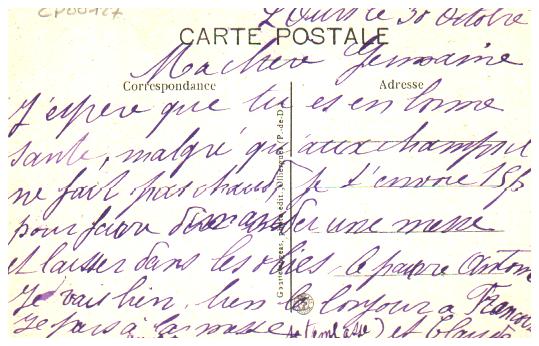 CP00427
le 30 Octobre
CARTE POSTALE
Ma chère Germaine
Correspondance
Adresse
J'espère que tu es en bonne
santé, malgré qu'aux champs il
ne fait pas chaud, Je t'envoie 15f
pour faire demander une messe
et laisser dans les
le pauvre Antoine
Je vais bien, bien le bonjour à François
Je fais à la messe
je t'embrasse) et
édit., Olliergues, P.-de-D.